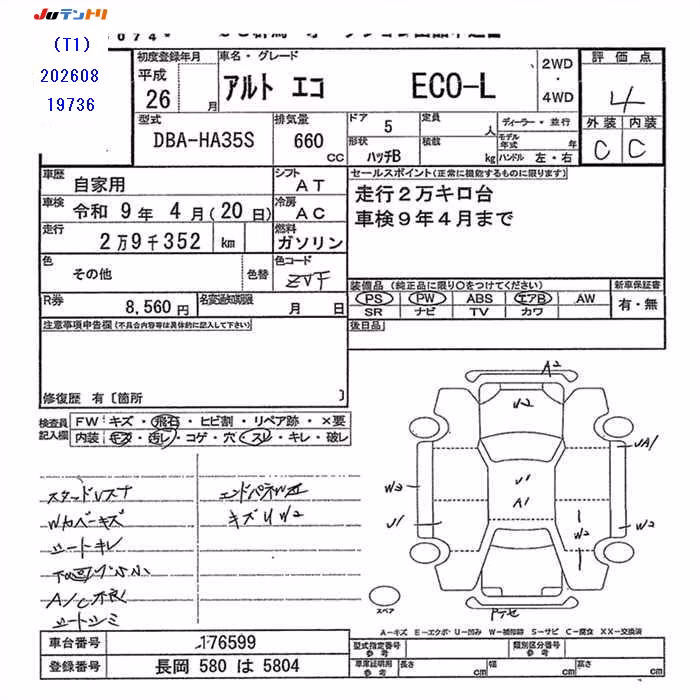 Juテントリ
(T1)
202608
19736
初度登録年月
平成
26
月
車名・グレード
アルト エコ
ECO-L
2WD
・
4WD
評価点
4
外装 内装
C C
型式
DBA-HA35S
排気量
660
CC
ドア
5
定員
人
ディーラー・並行
モデル年式
年
形状
ハッチB
積載
kg
ハンドル 左・右
車歴
自家用
シフト
AT
セールスポイント(正常に機能するものに限ります)
走行2万キロ台
車検9年4月まで
車検 令和 9年 4月(20日)
冷房
AC
走行
2万9千352 km
燃料
ガソリン
色
その他
色替
色コード
ZVF
装備品(純正品に限り○をつけてください)
新車保証書
PS PW ABS エアB AW
有・無
SR ナビ TV カワ
R券
8,560円
名変通知期限
月 日
後日品
注意事項申告欄(不具合内容等は具体的に記入して下さい)
修復歴 有〔箇所 〕
検査員
記入欄
FW キズ・飛石・ヒビ割・リペア跡・×要
内装 キズ・汚レ・コゲ・穴・スレ・キレ・破レ
エンドパネW
キズU W2
シートキレ
A/C不良
A2
W2
UA1
U1
A1
W2
U1
W2
W2
スペア
A-キズ E-エクボ・U-凹み W-補修跡 S-サビ C-腐食 XX-交換済
車台番号
176599
登録番号
長岡 580 は 5804
型式指定番号
参考
類別区分番号
参考
車庫証明用
参考
長さ cm
幅 cm
高さ cm